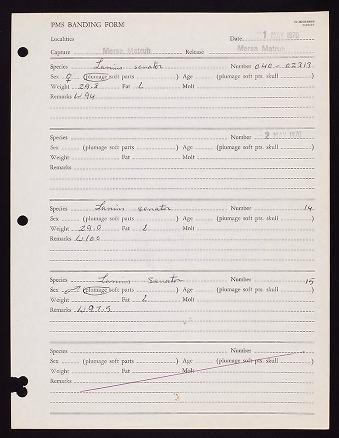 PMS BANDING FORM
Localities Date 1 MAY 1970
Capture Mersa Matruh Release Mersa Matruh
Species Lanius senator Number 040-02313
Sex ♀ (plumage soft parts) Age (plumage soft pts. skull)
Weight 29.8 Fat L Molt
Remarks W94
Species Number 2 MAY 1970
Sex (plumage soft parts) Age (plumage soft pts. skull)
Weight Fat Molt
Remarks
Species Lanius senator Number 14
Sex (plumage soft parts) Age (plumage soft pts. skull)
Weight 29.0 Fat L Molt
Remarks W100
Species Lanius senator Number 15
Sex (plumage soft parts) Age (plumage soft pts. skull)
Weight Fat L Molt
Remarks W97.5
Species Number
Sex (plumage soft parts) Age (plumage soft pts. skull)
Weight Fat Molt
Remarks
3